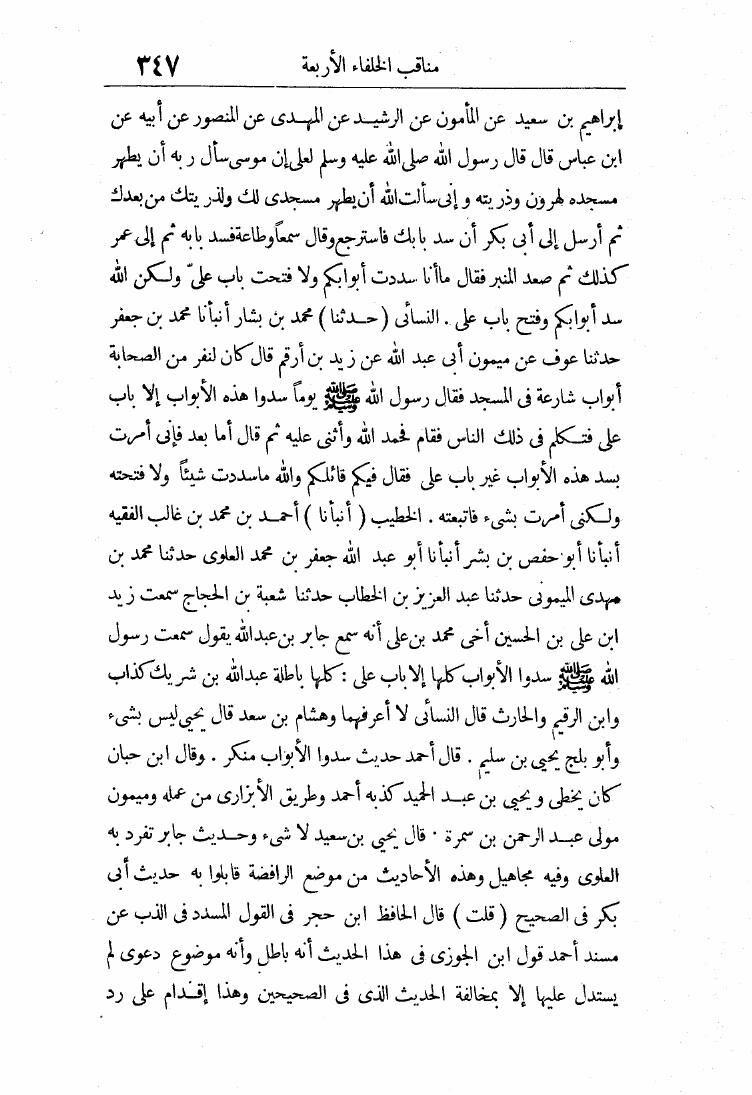 مناقب الخلفاء الأربعة ٣٤٧
إبراهيم بن سعيد عن المأمون عن الرشيد عن المهدى عن المنصور عن أبيه عن
ابن عباس قال قال رسول الله صلى الله عليه وسلم لعلى إن موسى سأل ربه أن يطهر
مسجده لهرون وذريته وإنى سألت الله أن يطهر مسجدى لك ولذريتك من بعدك
ثم أرسل إلى أبى بكر أن سد بابك فاسترجع وقال سمعاً وطاعة فسد بابه ثم إلى عمر
كذلك ثم صعد المنبر فقال ماأنا سددت أبوابكم ولا فتحت باب علىّ ولكن الله
سد أبوابكم وفتح باب على . النسائى ( حدثنا ) محمد بن بشار أنبأنا محمد بن جعفر
حدثنا عوف عن ميمون أبى عبد الله عن زيد بن أرقم قال كان لنفر من الصحابة
أبواب شارعة فى المسجد فقال رسول الله ﷺ يوماً سدوا هذه الأبواب إلا باب
على فتكلم فى ذلك الناس فقام فحمد الله وأثنى عليه ثم قال أما بعد فإنى أمرت
بسد هذه الأبواب غير باب على فقال فيكم قائلكم والله ماسددت شيئاً ولا فتحته
ولكنى أمرت بشىء فاتبعته . الخطيب ( أنبأنا ) أحمد بن محمد بن غالب الفقيه
أنبأنا أبو حفص بن بشر أنبأنا أبو عبد الله جعفر بن محمد العلوى حدثنا محمد بن
مهدى الميمونى حدثنا عبد العزيز بن الخطاب حدثنا شعبة بن الحجاج سمعت زيد
ابن على بن الحسين أخى محمد بن على أنه سمع جابر بن عبدالله يقول سمعت رسول
الله ﷺ سدوا الأبواب كلها إلا باب على : كلها باطلة عبدالله بن شريك كذاب
وابن الرقيم والحارث قال النسائى لا أعرفهما وهشام بن سعد قال يحيى ليس بشىء
وأبو بلج يحيى بن سليم . قال أحمد حديث سدوا الأبواب منكر . وقال ابن حبان
كان يخطى ويحيى بن عبد الحميد كذبه أحمد وطريق الأبزارى من عمله وميمون
مولى عبد الرحمن بن سمرة . قال يحيى بن سعيد لا شىء وحديث جابر تفرد به
العلوى وفيه مجاهيل وهذه الأحاديث من موضع الرافضة قابلوا به حديث أبى
بكر فى الصحيح ( قلت ) قال الحافظ ابن حجر فى القول المسدد فى الذب عن
مسند أحمد قول ابن الجوزى فى هذا الحديث أنه باطل وأنه موضوع دعوى لم
يستدل عليها إلا بمخالفة الحديث الذى فى الصحيحين وهذا إقدام على رد